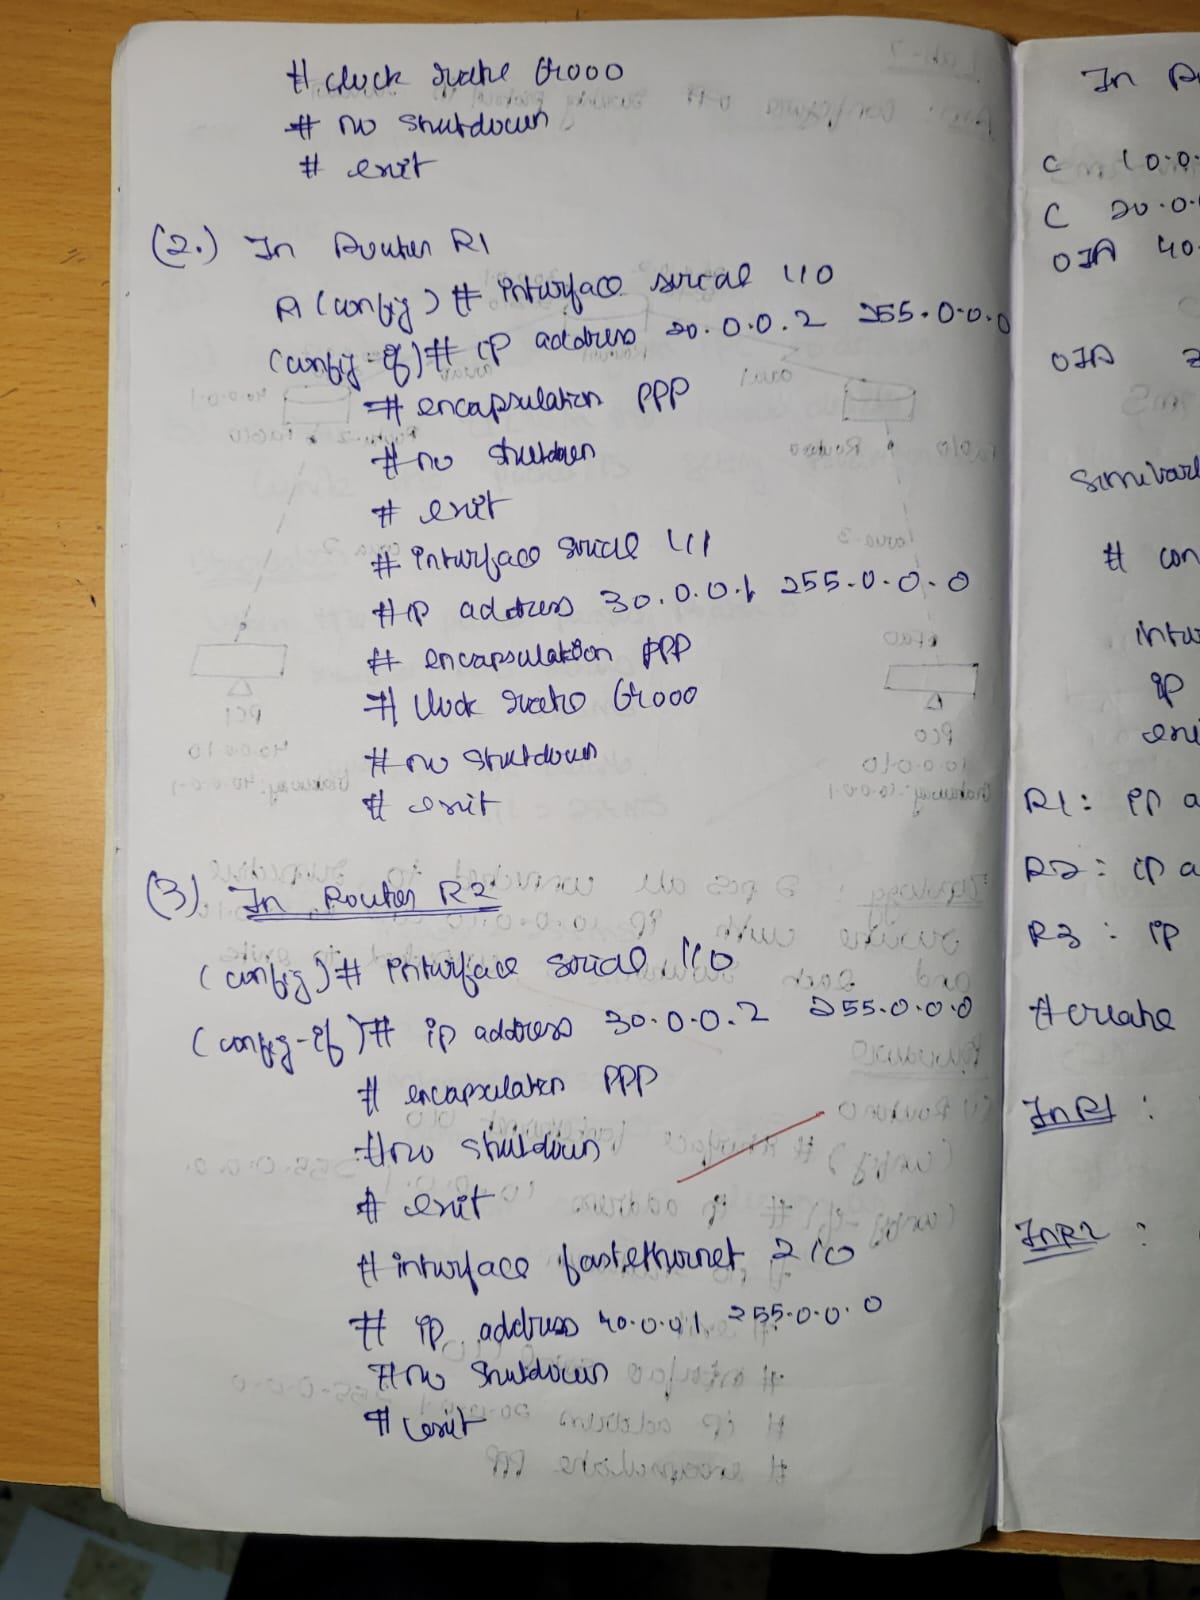 # clock rate 64000
# no shutdown
# exit
(2.) In Router R1
R1 (config) # interface serial 1/0
(config-if) # ip address 20.0.0.2 255.0.0.0
# encapsulation PPP
# no shutdown
# exit
# interface serial 1/1
# ip address 30.0.0.1 255.0.0.0
# encapsulation PPP
# clock rate 64000
# no shutdown
# exit
(3) In Router R2
(config) # interface serial 1/0
(config-if) # ip address 30.0.0.2 255.0.0.0
# encapsulation PPP
# no shutdown
# exit
# interface fastethernet 2/0
# ip address 40.0.0.1 255.0.0.0
# no shutdown
# exit
In
C 10.0.
C 20.0.
OIA 40.
OIA
# con
ip
R1: ip a
R2: ip a
R3: ip
# create
In R1:
In R2: